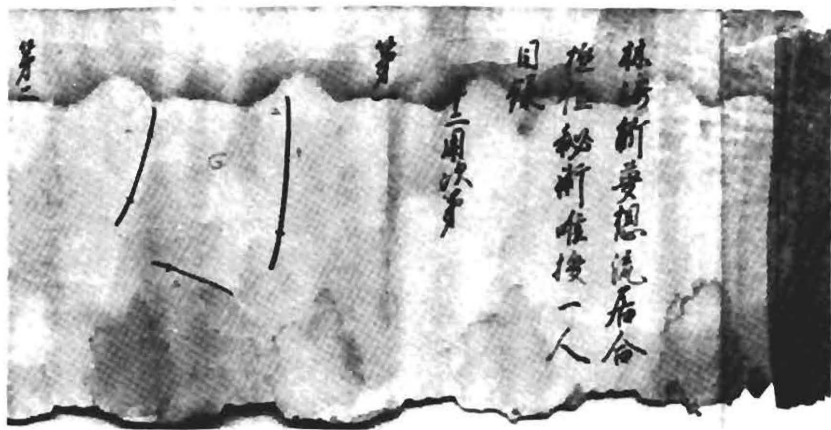 林崎新夢想流居合
極位秘術唯授一人
目録
十二 次第
第
第二